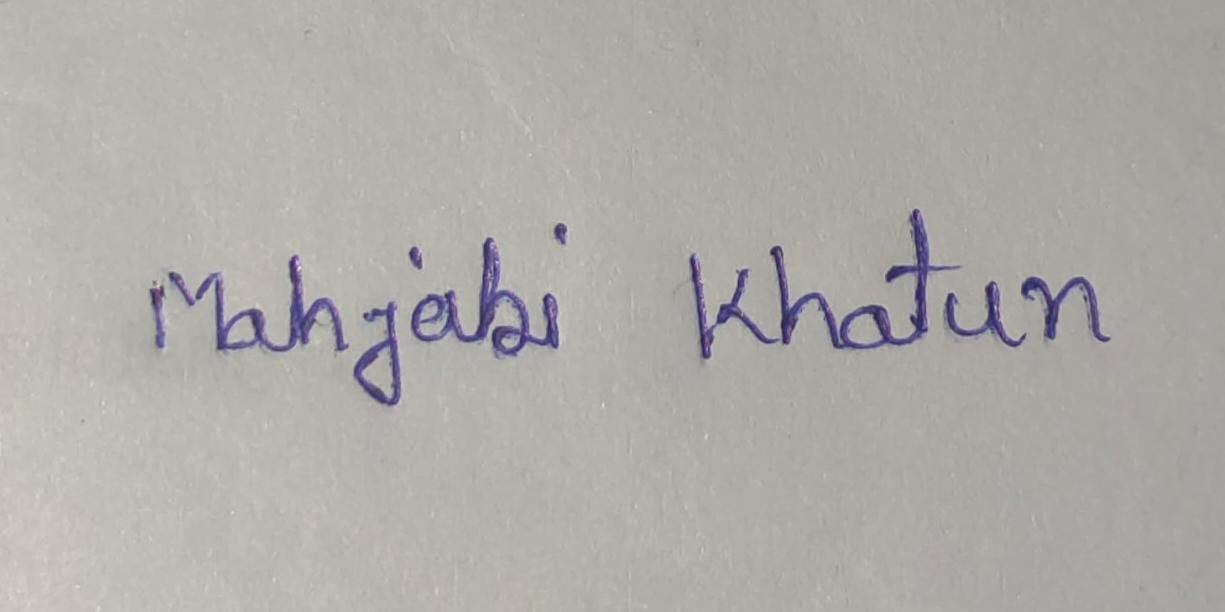 Mahjabi Khatun